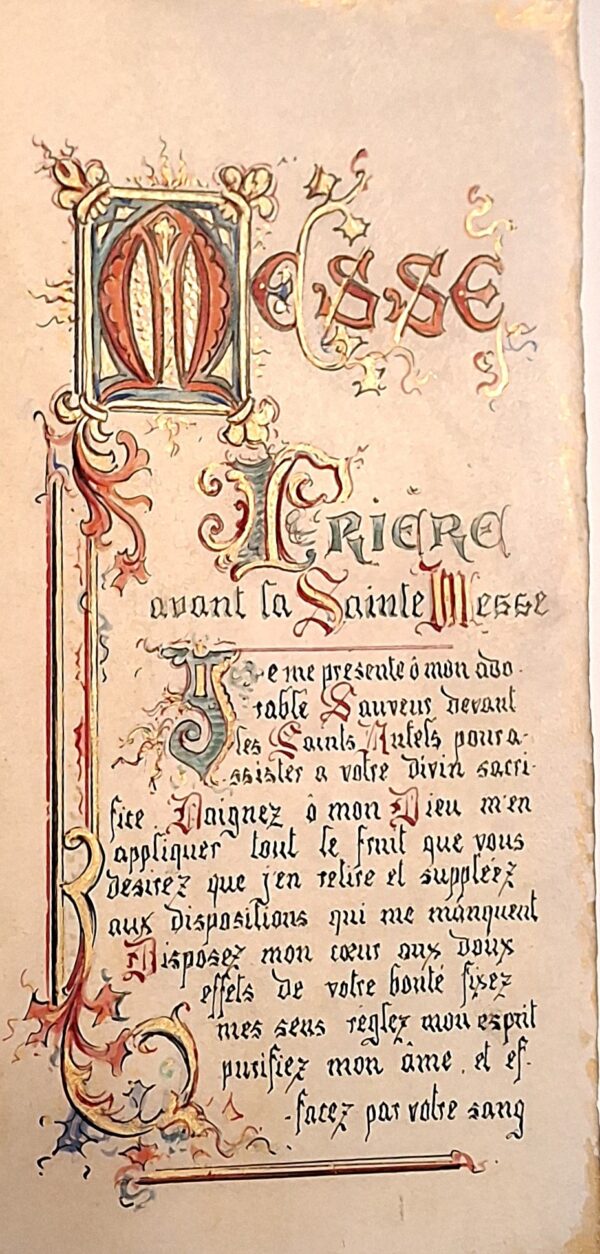 Messe
Prière
avant la Sainte Messe
Je me présente ô mon ado-
rable Sauveur devant
les Saints Autels pour a-
ssister a votre divin sacri-
fice Daignez ô mon Dieu m'en
appliquer tout le fruit que vous
desirez que j'en retire et suppléez
aux dispositions qui me manquent
Disposez mon cœur aux doux
effets de votre bonté fixez
mes sens réglez mon esprit
purifiez mon âme, et ef-
-facez par votre sang